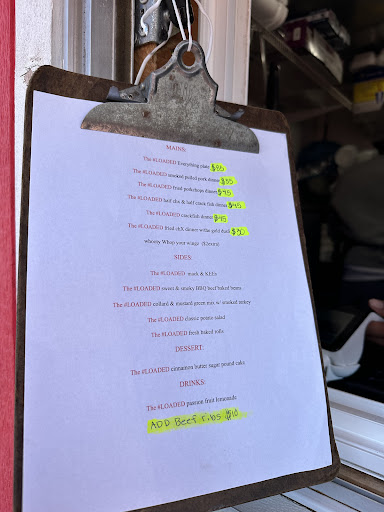 MAINS:
The #LOADED Everything plate $85
The #LOADED smoked pulled pork dinner $35
The #LOADED fried porkchops dinner $45
The #LOADED half ribs & half crack fish dinner $45
The #LOADED crackfish dinner $45
The #LOADED fried chX dinner w/the gold dust $30
whoopy Whop your wings ($2extra)
SIDES:
The #LOADED mack & KEEs
The #LOADED sweet & smoky BBQ beef baked beans
The #LOADED collard & mustard green mix w/ smoked turkey
The #LOADED classic potato salad
The #LOADED fresh baked rolls
DESSERT:
The #LOADED cinnamon butter sugar pound cake
DRINKS:
The #LOADED passion fruit lemonade
ADD Beef ribs $10